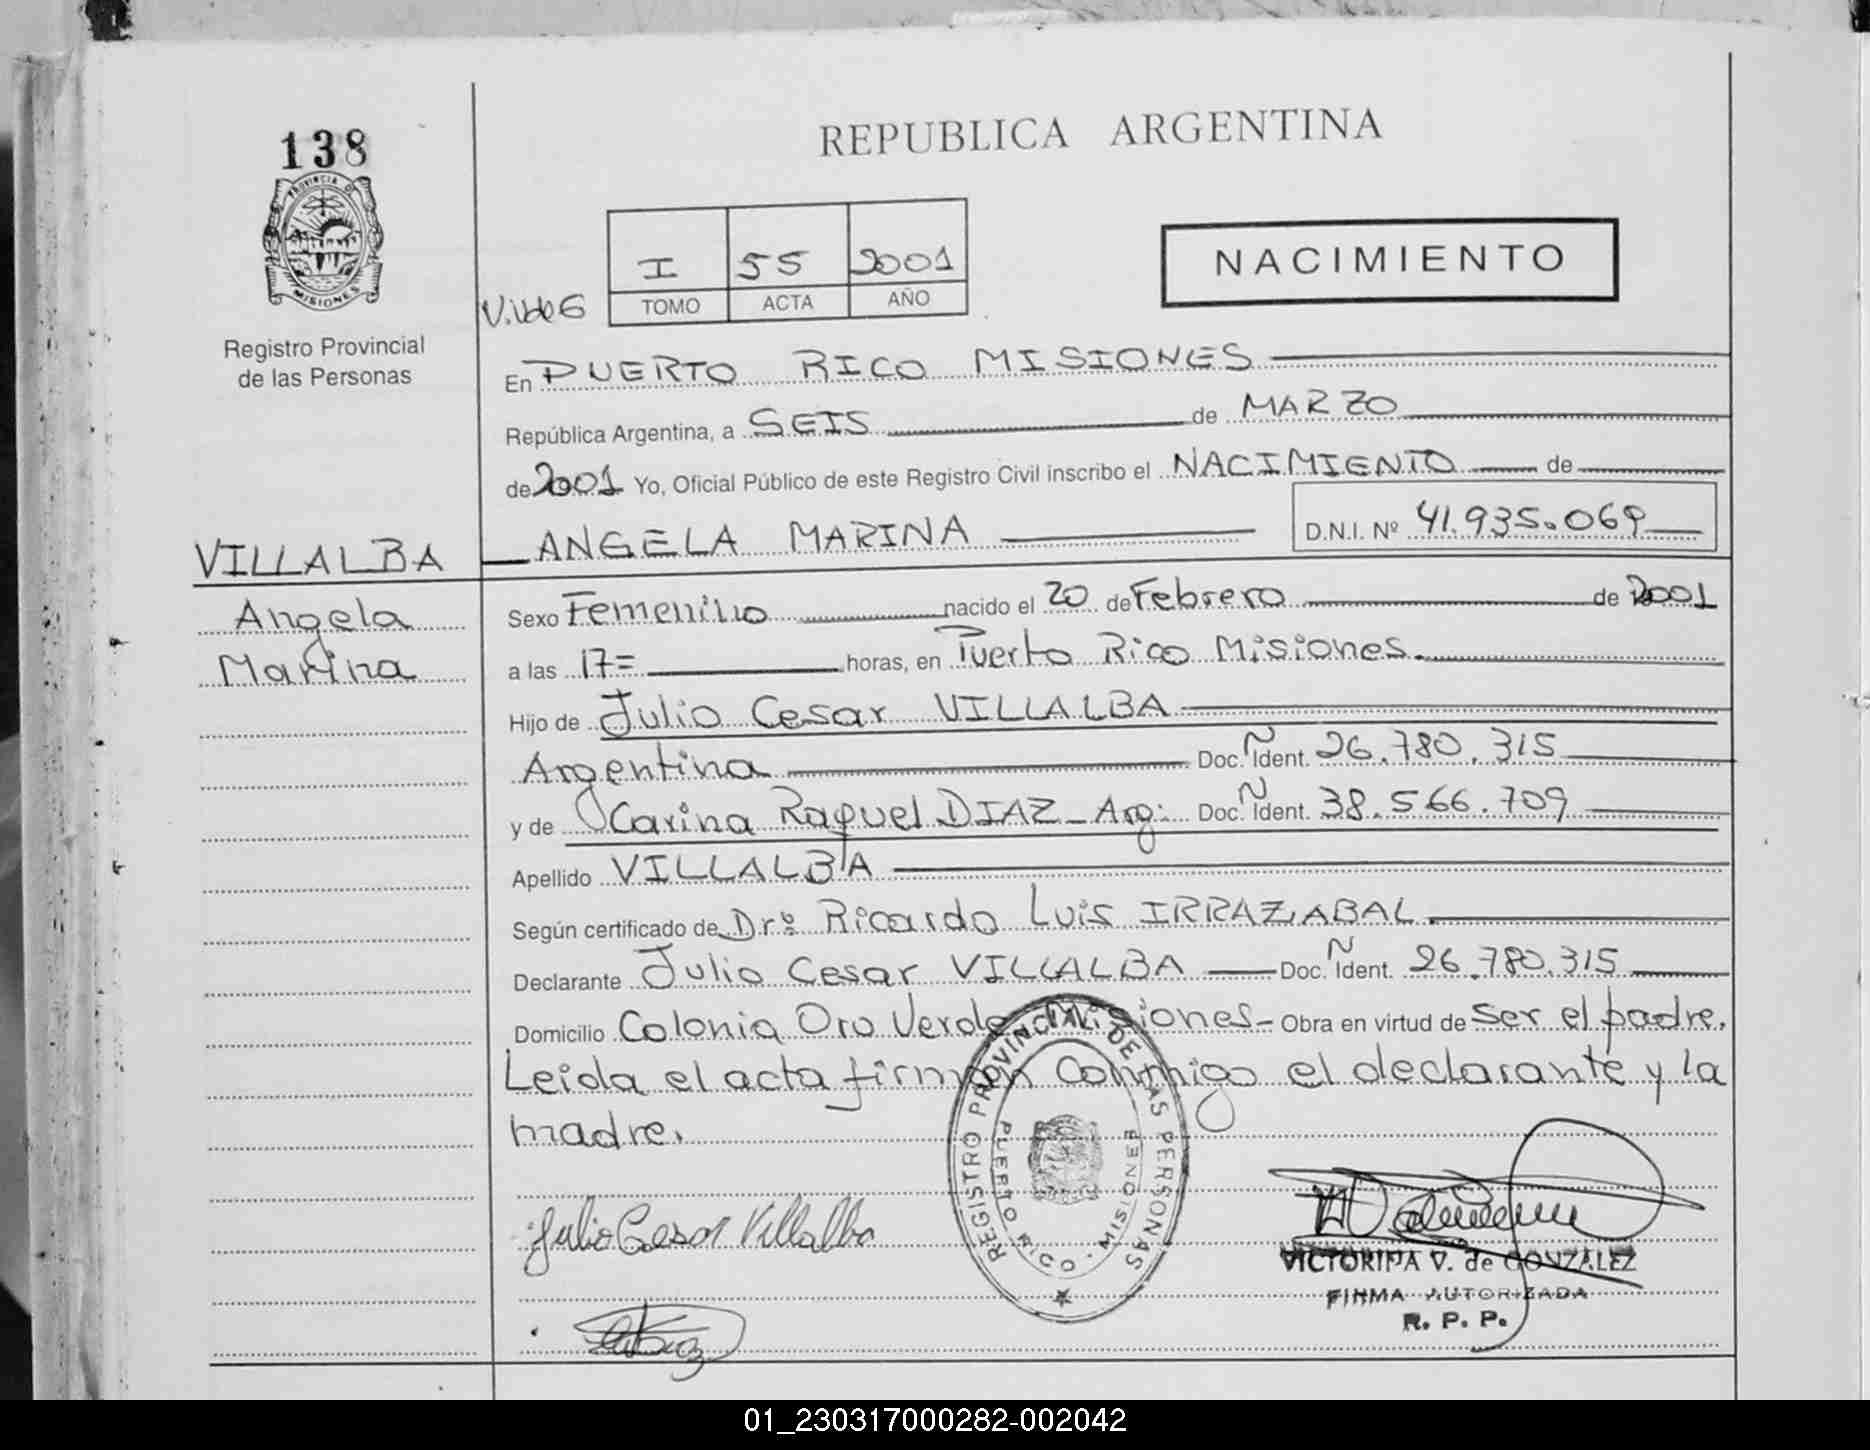 138
PROVINCIA D
MISIONES
Registro Provincial
de las Personas
REPUBLICA ARGENTINA
I 55 2001
TOMO ACTA AÑO
NACIMIENTO
En PUERTO RICO MISIONES
República Argentina, a SEIS de MARZO
de 2001 Yo, Oficial Público de este Registro Civil inscribo el NACIMIENTO de
ANGELA MARINA D.N.I. Nº 41.935.069
VILLALBA
Angela
Marina
Sexo Femenino nacido el 20 de Febrero de 2001
a las 17= horas, en Puerto Rico Misiones.
Hijo de Julio Cesar VILLALBA
Argentina Doc. Ident. 26.780.315
y de Carina Raquel DIAZ - Arg: Doc. Ident. 38.566.709
Apellido VILLALBA
Según certificado de Dr: Ricardo Luis IRRAZABAL
Declarante Julio Cesar VILLALBA Doc. Ident. 26.780.315
Domicilio Colonia Oro Verde Misiones- Obra en virtud de ser el padre.
Leida el acta firman conmigo el declarante y la
madre.
REGISTRO PROVINCIAL DE LAS PERSONAS
PUERTO RICO - MISIONES
Julio Cesar Villalba
VICTORINA V. de GONZALEZ
FIRMA AUTORIZADA
R. P. P.
01_230317000282-002042